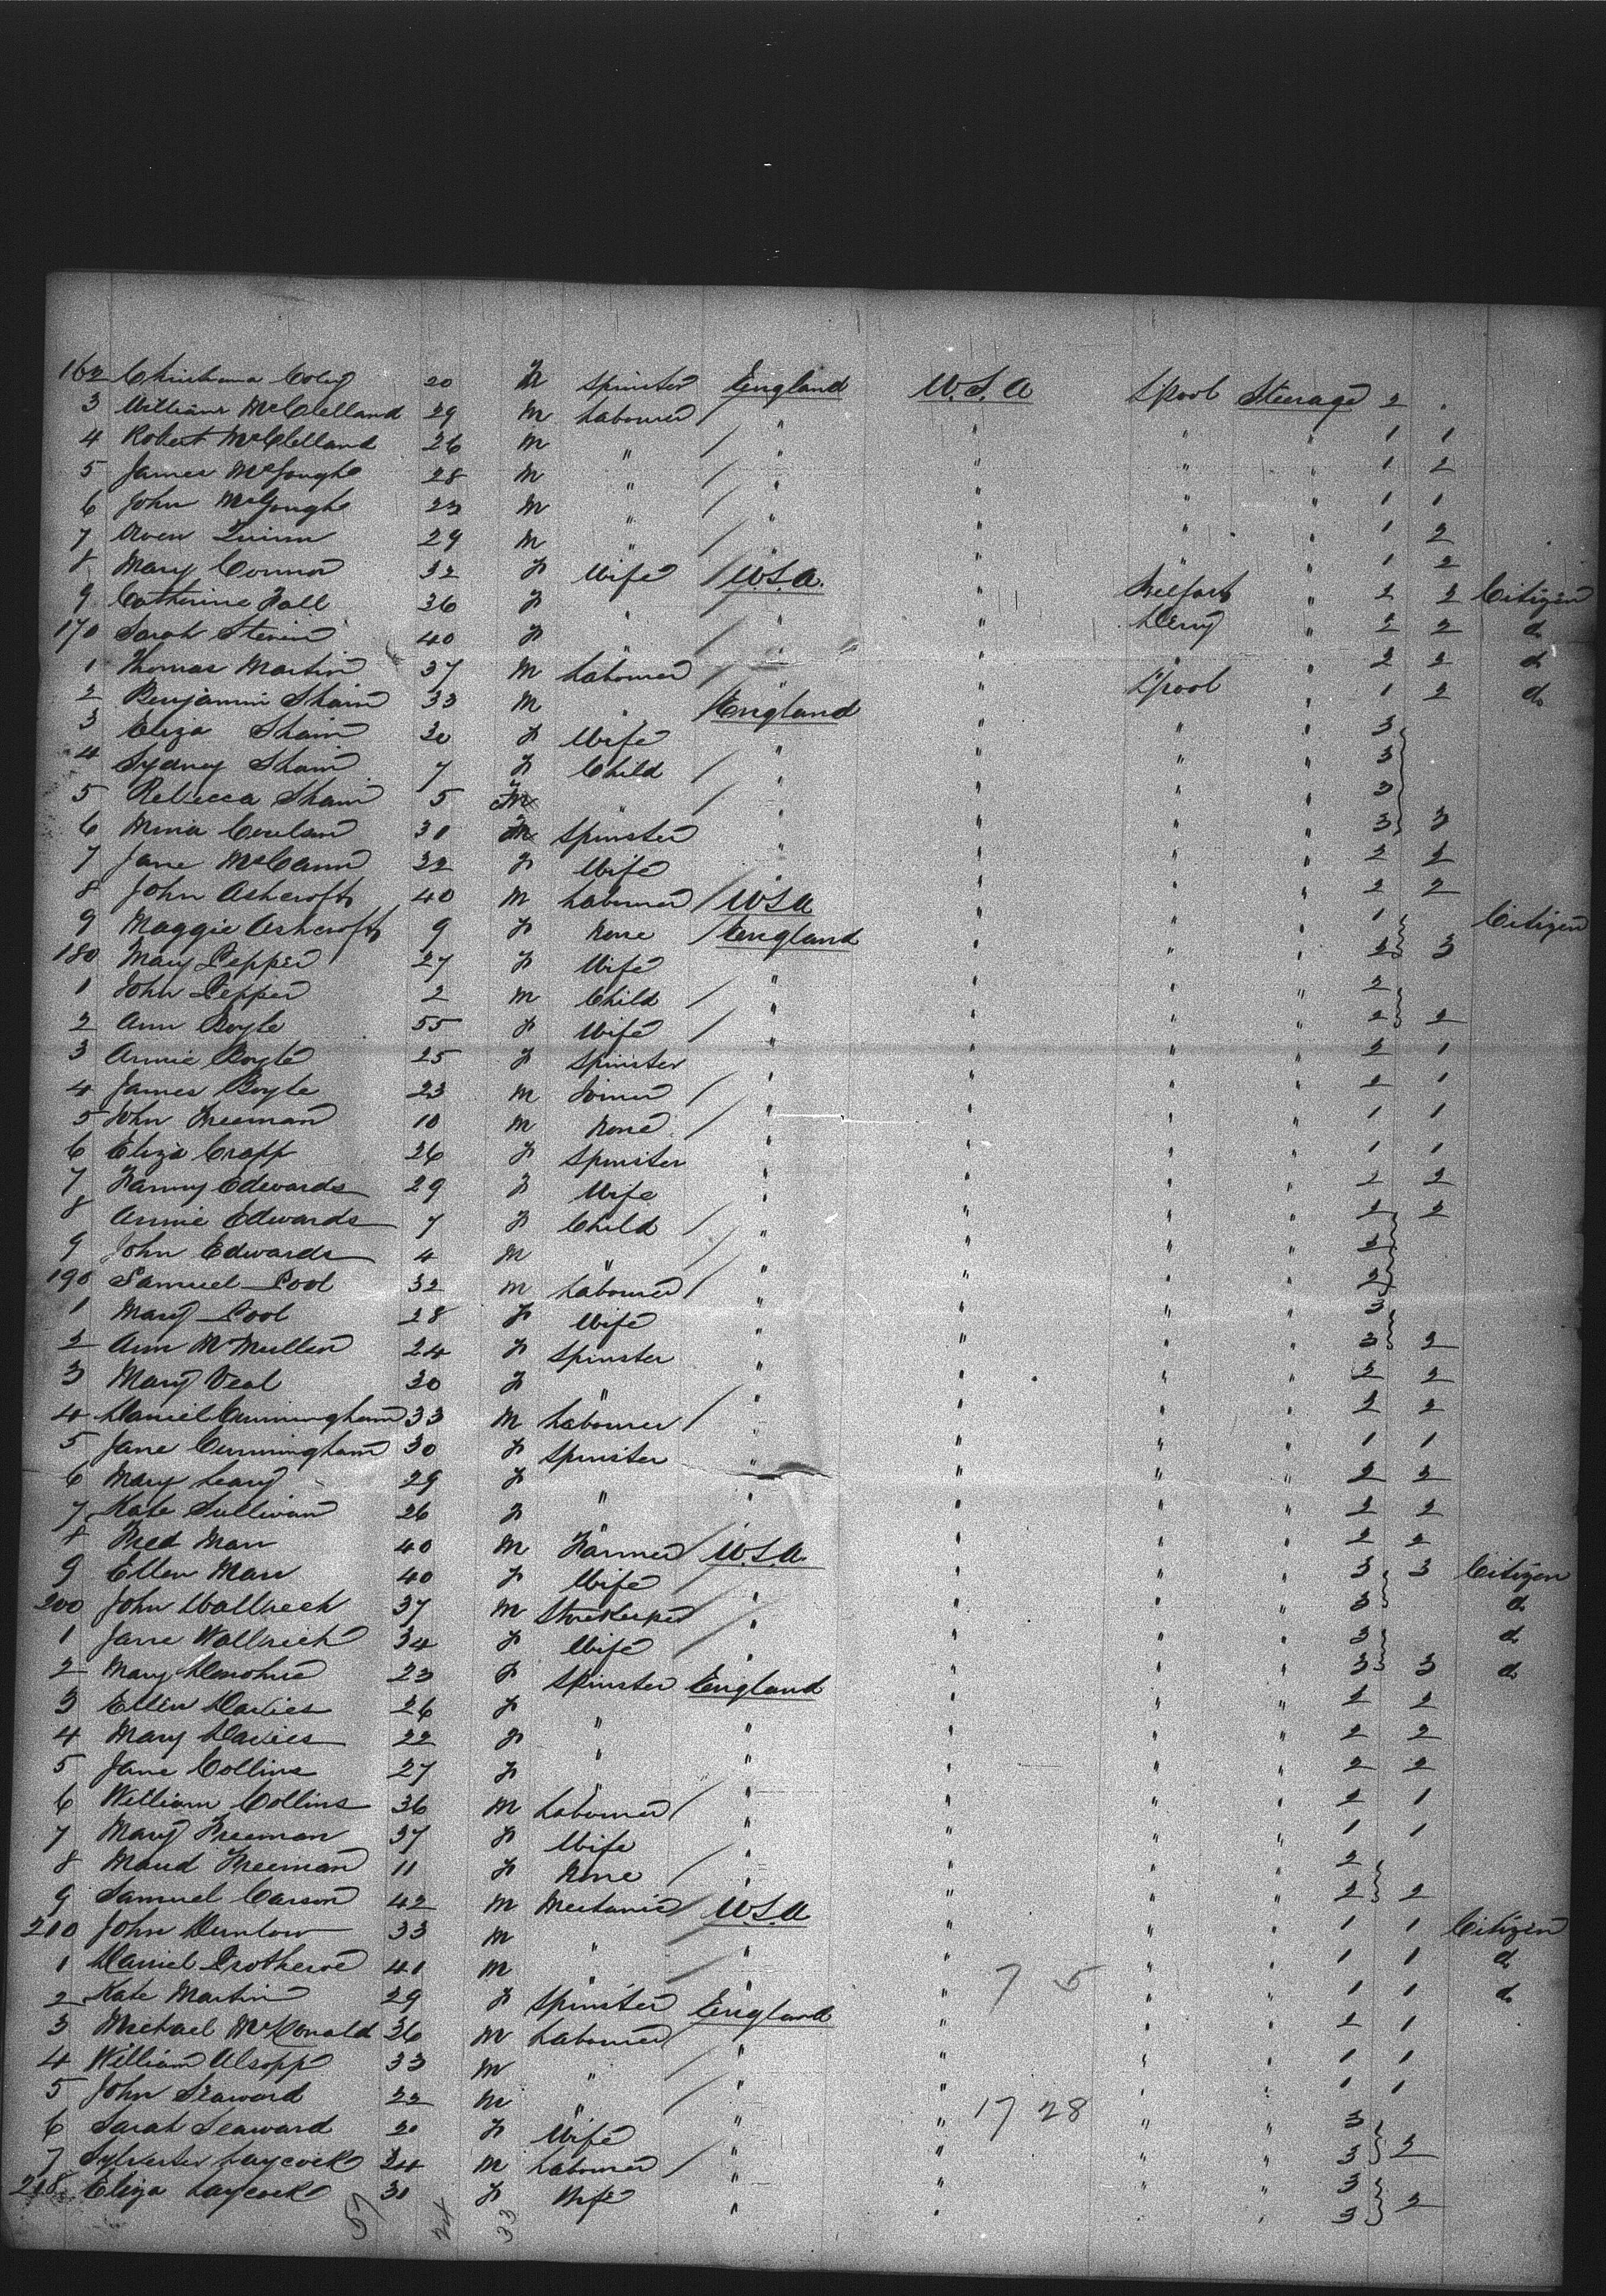 162 20 F Spinster England U.S.A L'pool Steerage 2
3 William McClelland 29 M Labourer / " " " " 1 1
4 Robert McClelland 26 M " / " " " " 1 2
5 James McGough 28 M " / " " " " 1 1
6 John McGough 23 M " / " " " " 1 2
7 Owen Quinn 29 M " / " " " " 1 2
8 Mary Connor 32 F Wife / U.S.A. " Belfast " 2 2 Citizen
9 Catherine Hall 36 F " / " " Derry " 2 2 do
170 Sarah 40 F " / " " " " 2 2 do
1 Thomas Martin 37 M Labourer / " " L'pool " 1 2 do
2 Benjamin 33 M " / England " " " 3
3 Eliza 30 F Wife " " " " 3
4 Sydney 7 F Child / " " " " 3
5 Rebecca 5 " / " " " " 3 3
6 31 Spinster " " " " 2 2
7 Jane McCann 32 F Wife " " " " 2 2
8 John Ashcroft 40 M Labourer / U.S.A " " " 1 Citizen
9 Maggie Ashcroft 9 F None / England " " " 2 3
180 Mary Pepper 27 F Wife " " " " 2
1 John Pepper 2 M Child / " " " " 2 2
2 Ann Boyle 55 F Wife / " " " " 2 1
3 Annie Boyle 25 F Spinster " " " " 2 1
4 James Boyle 23 M Joiner / " " " " 1 1
5 John Freeman 10 M None / " " " " 1 1
6 Eliza Crapp 26 F Spinster " " " " 2 2
7 Fanny Edwards 29 F Wife " " " " 2 2
8 Annie Edwards 7 F Child / " " " " 2
9 John Edwards 4 M " / " " " " 2
190 Samuel Pool 32 M Labourer / " " " " 3
1 Mary Pool 28 F Wife " " " " 3 2
2 Ann McMullen 24 F Spinster " " " " 2 2
3 Mary Veal 30 F " " " " " 2 2
4 Daniel Cunningham 33 M Labourer / " " " " 1 1
5 Jane Cunningham 30 F Spinster " " " " 2 2
6 Mary Leary 29 F " " " " " 2 2
7 Kate Sullivan 26 F " " " " " 2 2
8 Fred Marr 40 M Farmer / U.S.A. " " " 3 3 Citizen
9 Ellen Marr 40 F Wife / " " " " 3 do
200 John 37 M Storekeeper / " " " " 3 do
1 Jane 34 F Wife / " " " " 3 3 do
2 Mary Donohue 23 F Spinster England " " " 2 2
3 Ellen Davies 26 F " " " " " 2 2
4 Mary Davies 22 F " " " " " 2 2
5 Jane Collins 27 F " " " " " 2 1
6 William Collins 36 M Labourer / " " " " 1 1
7 Mary Freeman 37 F Wife " " " " 2
8 Maud Freeman 11 F None / " " " " 2 2
9 Samuel Carson 42 M Mechanic / U.S.A " " " 1 1 Citizen
210 John 33 M " / " " " " 1 1 do
1 Daniel Protheroe 41 M " / " " 7 5 " " 1 1 do
2 Kate Martin 29 F Spinster England " " " 2 1
3 Michael McDonald 36 M Labourer / " " " " 1 1
4 William Alsopp 33 M " / " " " " 1 1
5 John Seaward 22 M " / " " 17 28 " " 3
6 Sarah Seaward 20 F Wife " " " " 3 2
7 Sylvester Laycock 24 M Labourer / " " " " 3
218 Eliza Laycock 30 F Wife " " " " 3 2
57 24 33